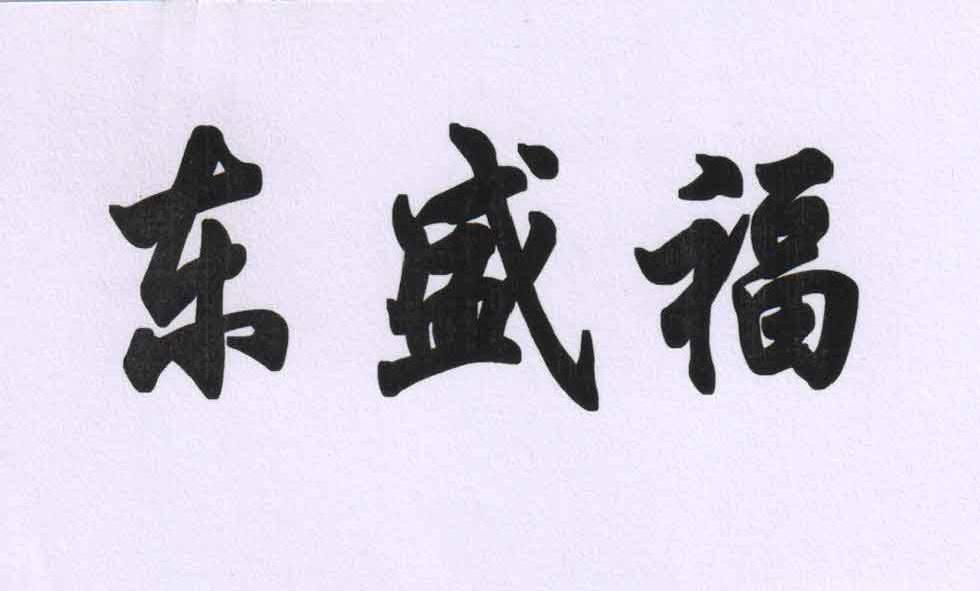 东盛福